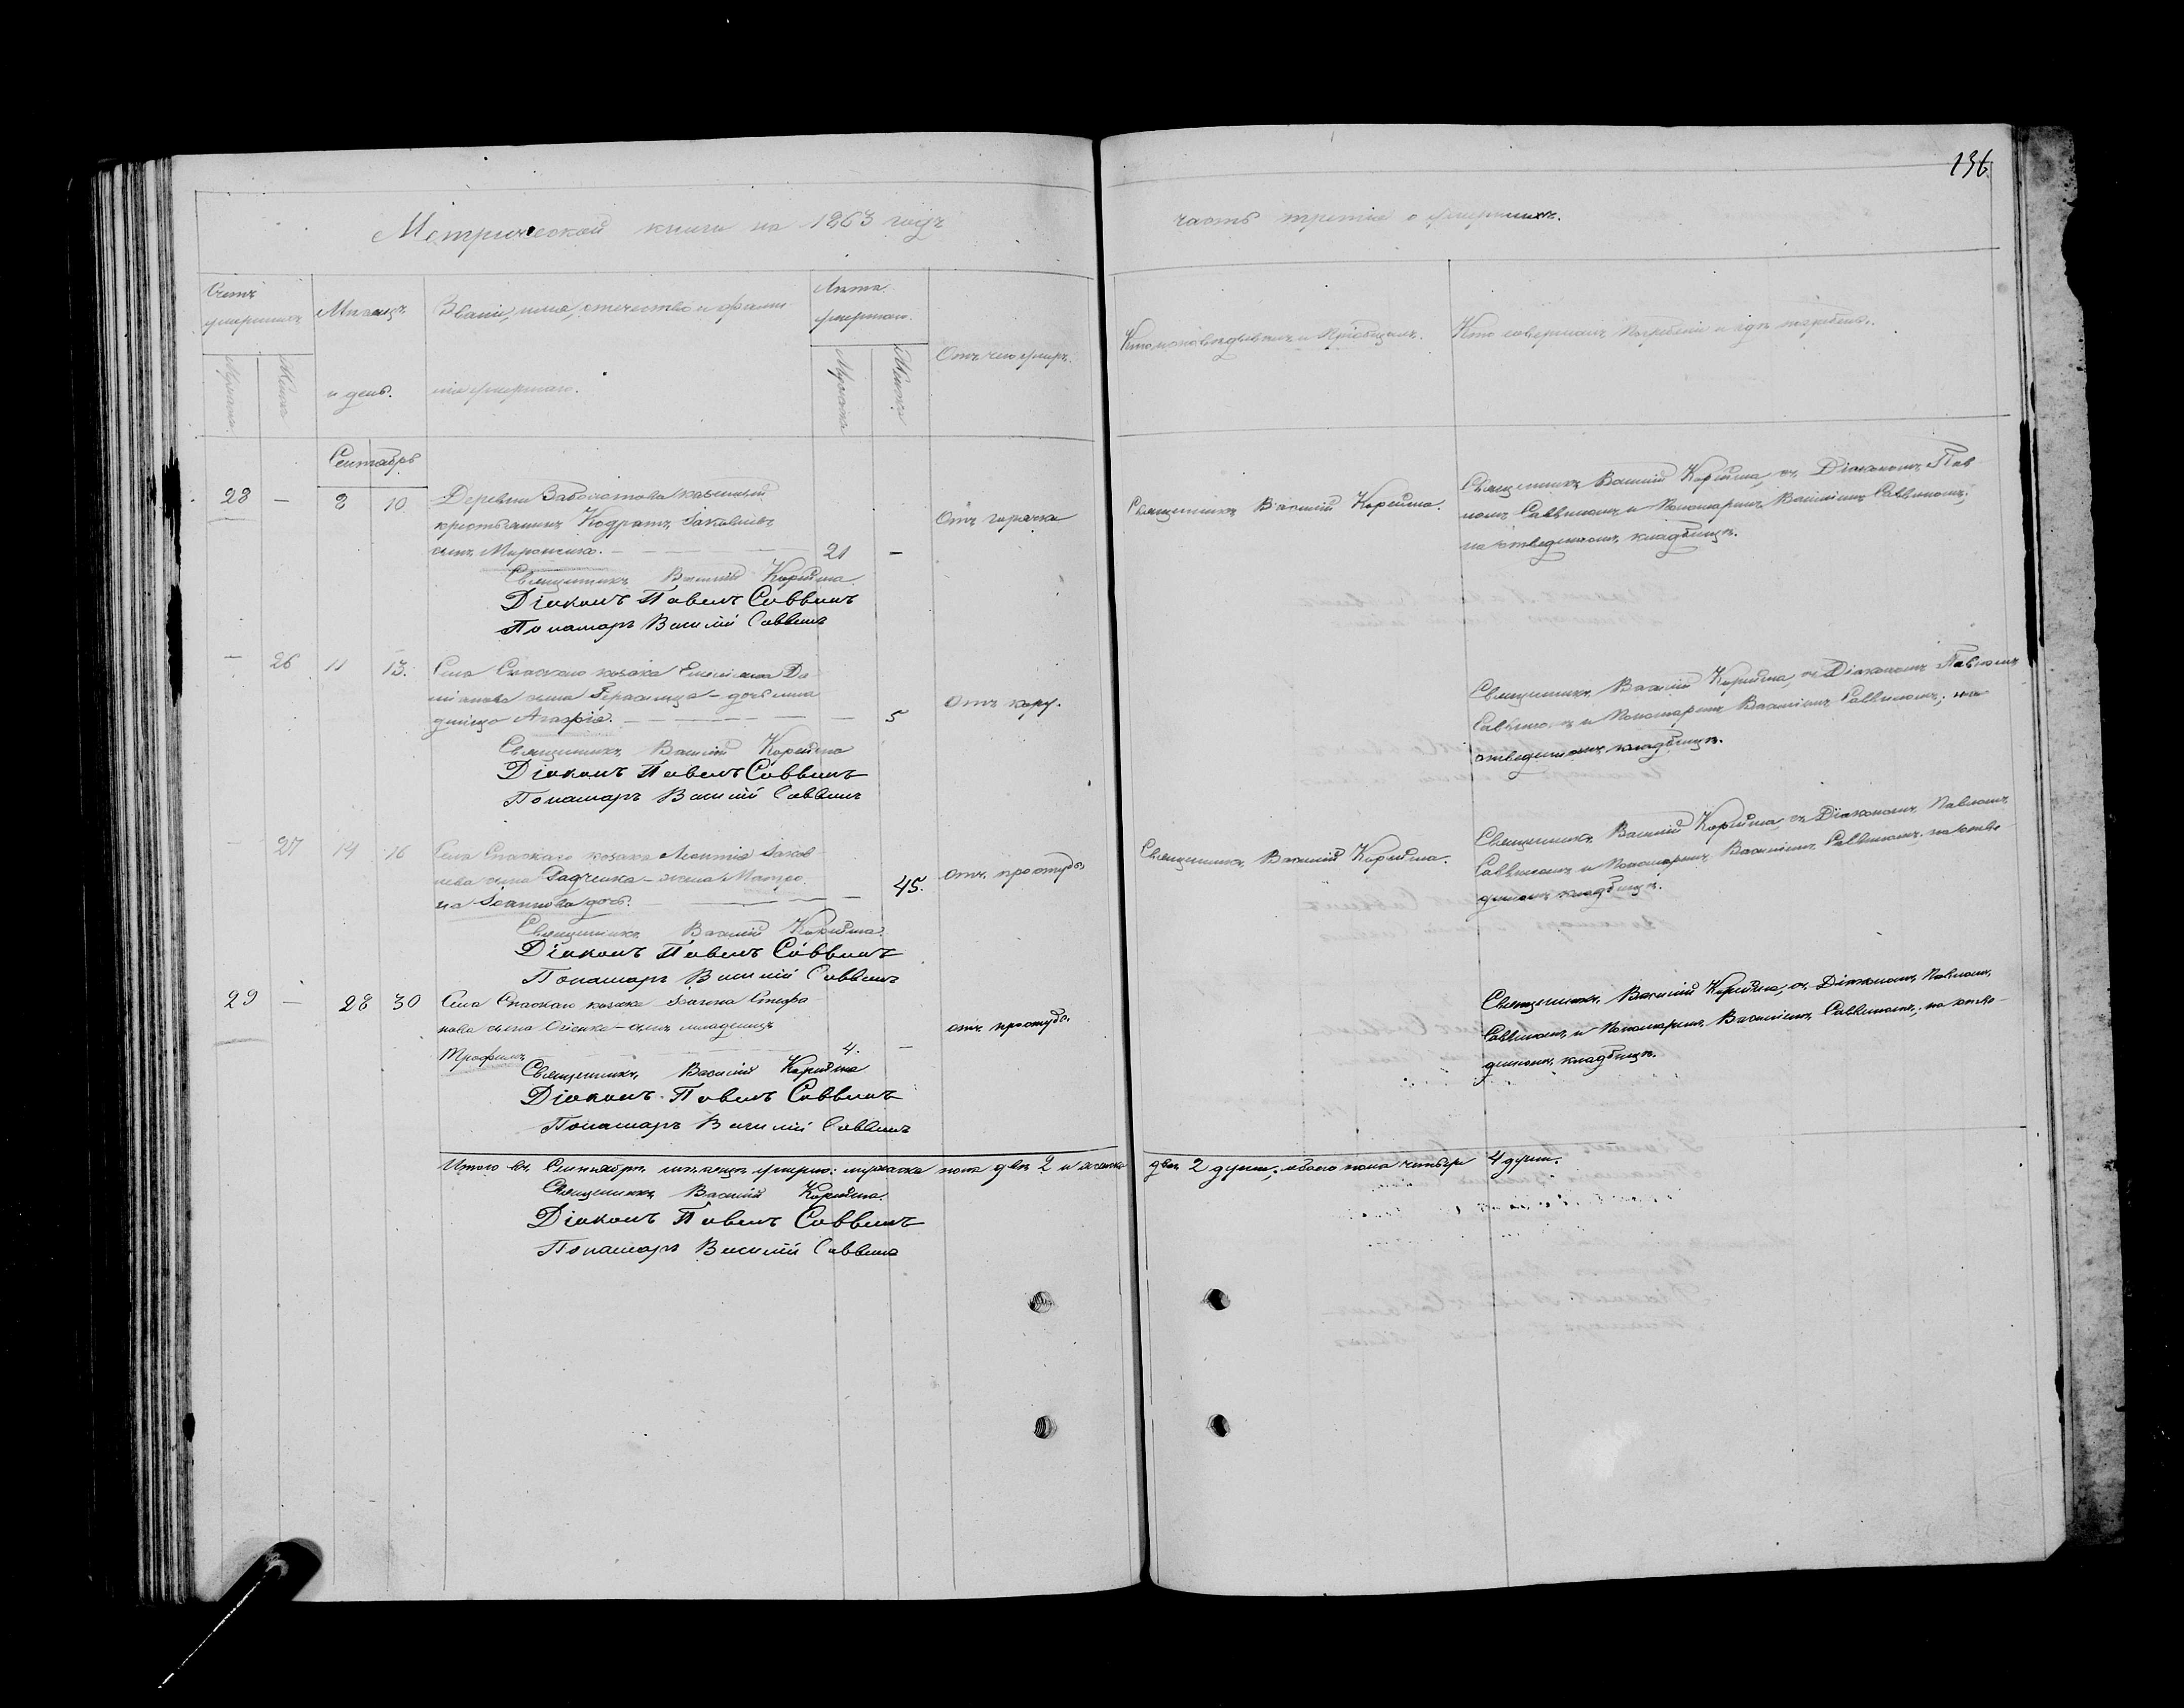 136
Метрической книги на 1863 годъ
часть третія о умершихъ.
Счетъ умершихъ
Мужеска.
Женска
Мѣсяцъ
и день.
Званіе, имя, отечество и фами-
лія умершаго.
Лѣта умершаго.
Мужеска
Женска
Отъ чего умеръ.
Кто исповѣдывалъ и пріобщалъ.
Кто совершалъ погребеніе и гдѣ погребенъ.
Сентябрь
28 — 8 10
Деревни Заболотова казенный
крестьянинъ Кодратъ Іаковлевъ
сынъ Мироненко. 21 —
Отъ горячки
Священникъ Василій
Священникъ Василій съ Діакономъ Пав-
ломъ Саввинымъ и Пономаремъ Василіемъ Саввинымъ,
на отведенномъ кладбищѣ.
Священникъ Василій
Діаконъ Павелъ Саввинъ
Пономарь Василій Саввинъ
— 26 11 13.
Села Спаскаго козака Емиліана Да-
міанова сына Герасимца – дочь мла
денецъ Агафія. — 5
Отъ кору.
Священникъ Василій съ Діакономъ Павломъ
Саввинымъ и Пономаремъ Василіемъ Саввинымъ, на
отведенномъ кладбищѣ.
Священникъ Василій
Діаконъ Павелъ Саввинъ
Пономарь Василій Саввинъ
— 27 14 16
Села Спаскаго козака Леонтія Іаков-
лева сына Радченка – жена Матро-
на Іоаннова дочь. — 45.
отъ простуды
Священникъ Василій
Священникъ Василій съ Діакономъ Павломъ
Саввинымъ и Пономаремъ Василіемъ Саввинымъ, на отве-
денномъ кладбищѣ.
Священникъ Василій
Діаконъ Павелъ Саввинъ
Пономарь Василій Саввинъ
29 — 28 30
Села Спаскаго козака Іоанна Стефа-
нова сына – сынъ младенецъ
Трофимъ 4. —
отъ простуды.
Священникъ Василій съ Діакономъ Павломъ
Саввинымъ и Пономаремъ Василіемъ Саввинымъ, на отве-
денномъ кладбищѣ.
Священникъ Василій
Діаконъ Павелъ Саввинъ
Пономарь Василій Саввинъ
Итого въ Сентябрѣ мѣсяцѣ умерло: мужеска пола двѣ 2 и женска двѣ 2 души, обоего пола четыре 4 души.
Священникъ Василій
Діаконъ Павелъ Саввинъ
Пономарь Василій Саввинъ